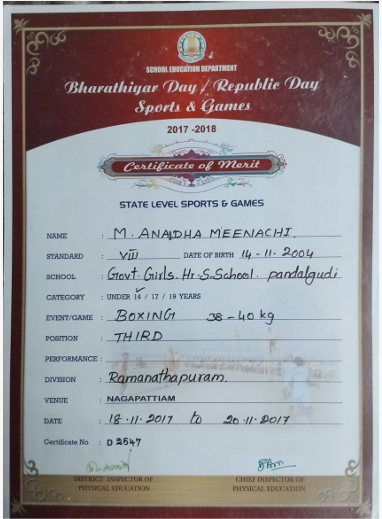 SCHOOL EDUCATION DEPARTMENT
Bharathiyar Day / Republic Day
Sports & Games
2017 -2018
Certificate of Merit
STATE LEVEL SPORTS & GAMES
NAME : M. ANANDHA MEENACHI.
STANDARD : VIII DATE OF BIRTH 14 - 11 - 2004
SCHOOL : Govt. Girls. Hr. S. School. pandalgudi
CATEGORY : UNDER 14 / 17 / 19 YEARS
EVENT/GAME : BOXING 38 - 40 kg
POSITION : THIRD
PERFORMANCE :
DIVISION : Ramanathapuram.
VENUE : NAGAPATTIAM
DATE : 18.11.2017 to 20.11.2017
Certificate No : D 2547
DISTRICT INSPECTOR OF CHIEF INSPECTOR OF
PHYSICAL EDUCATION PHYSICAL EDUCATION